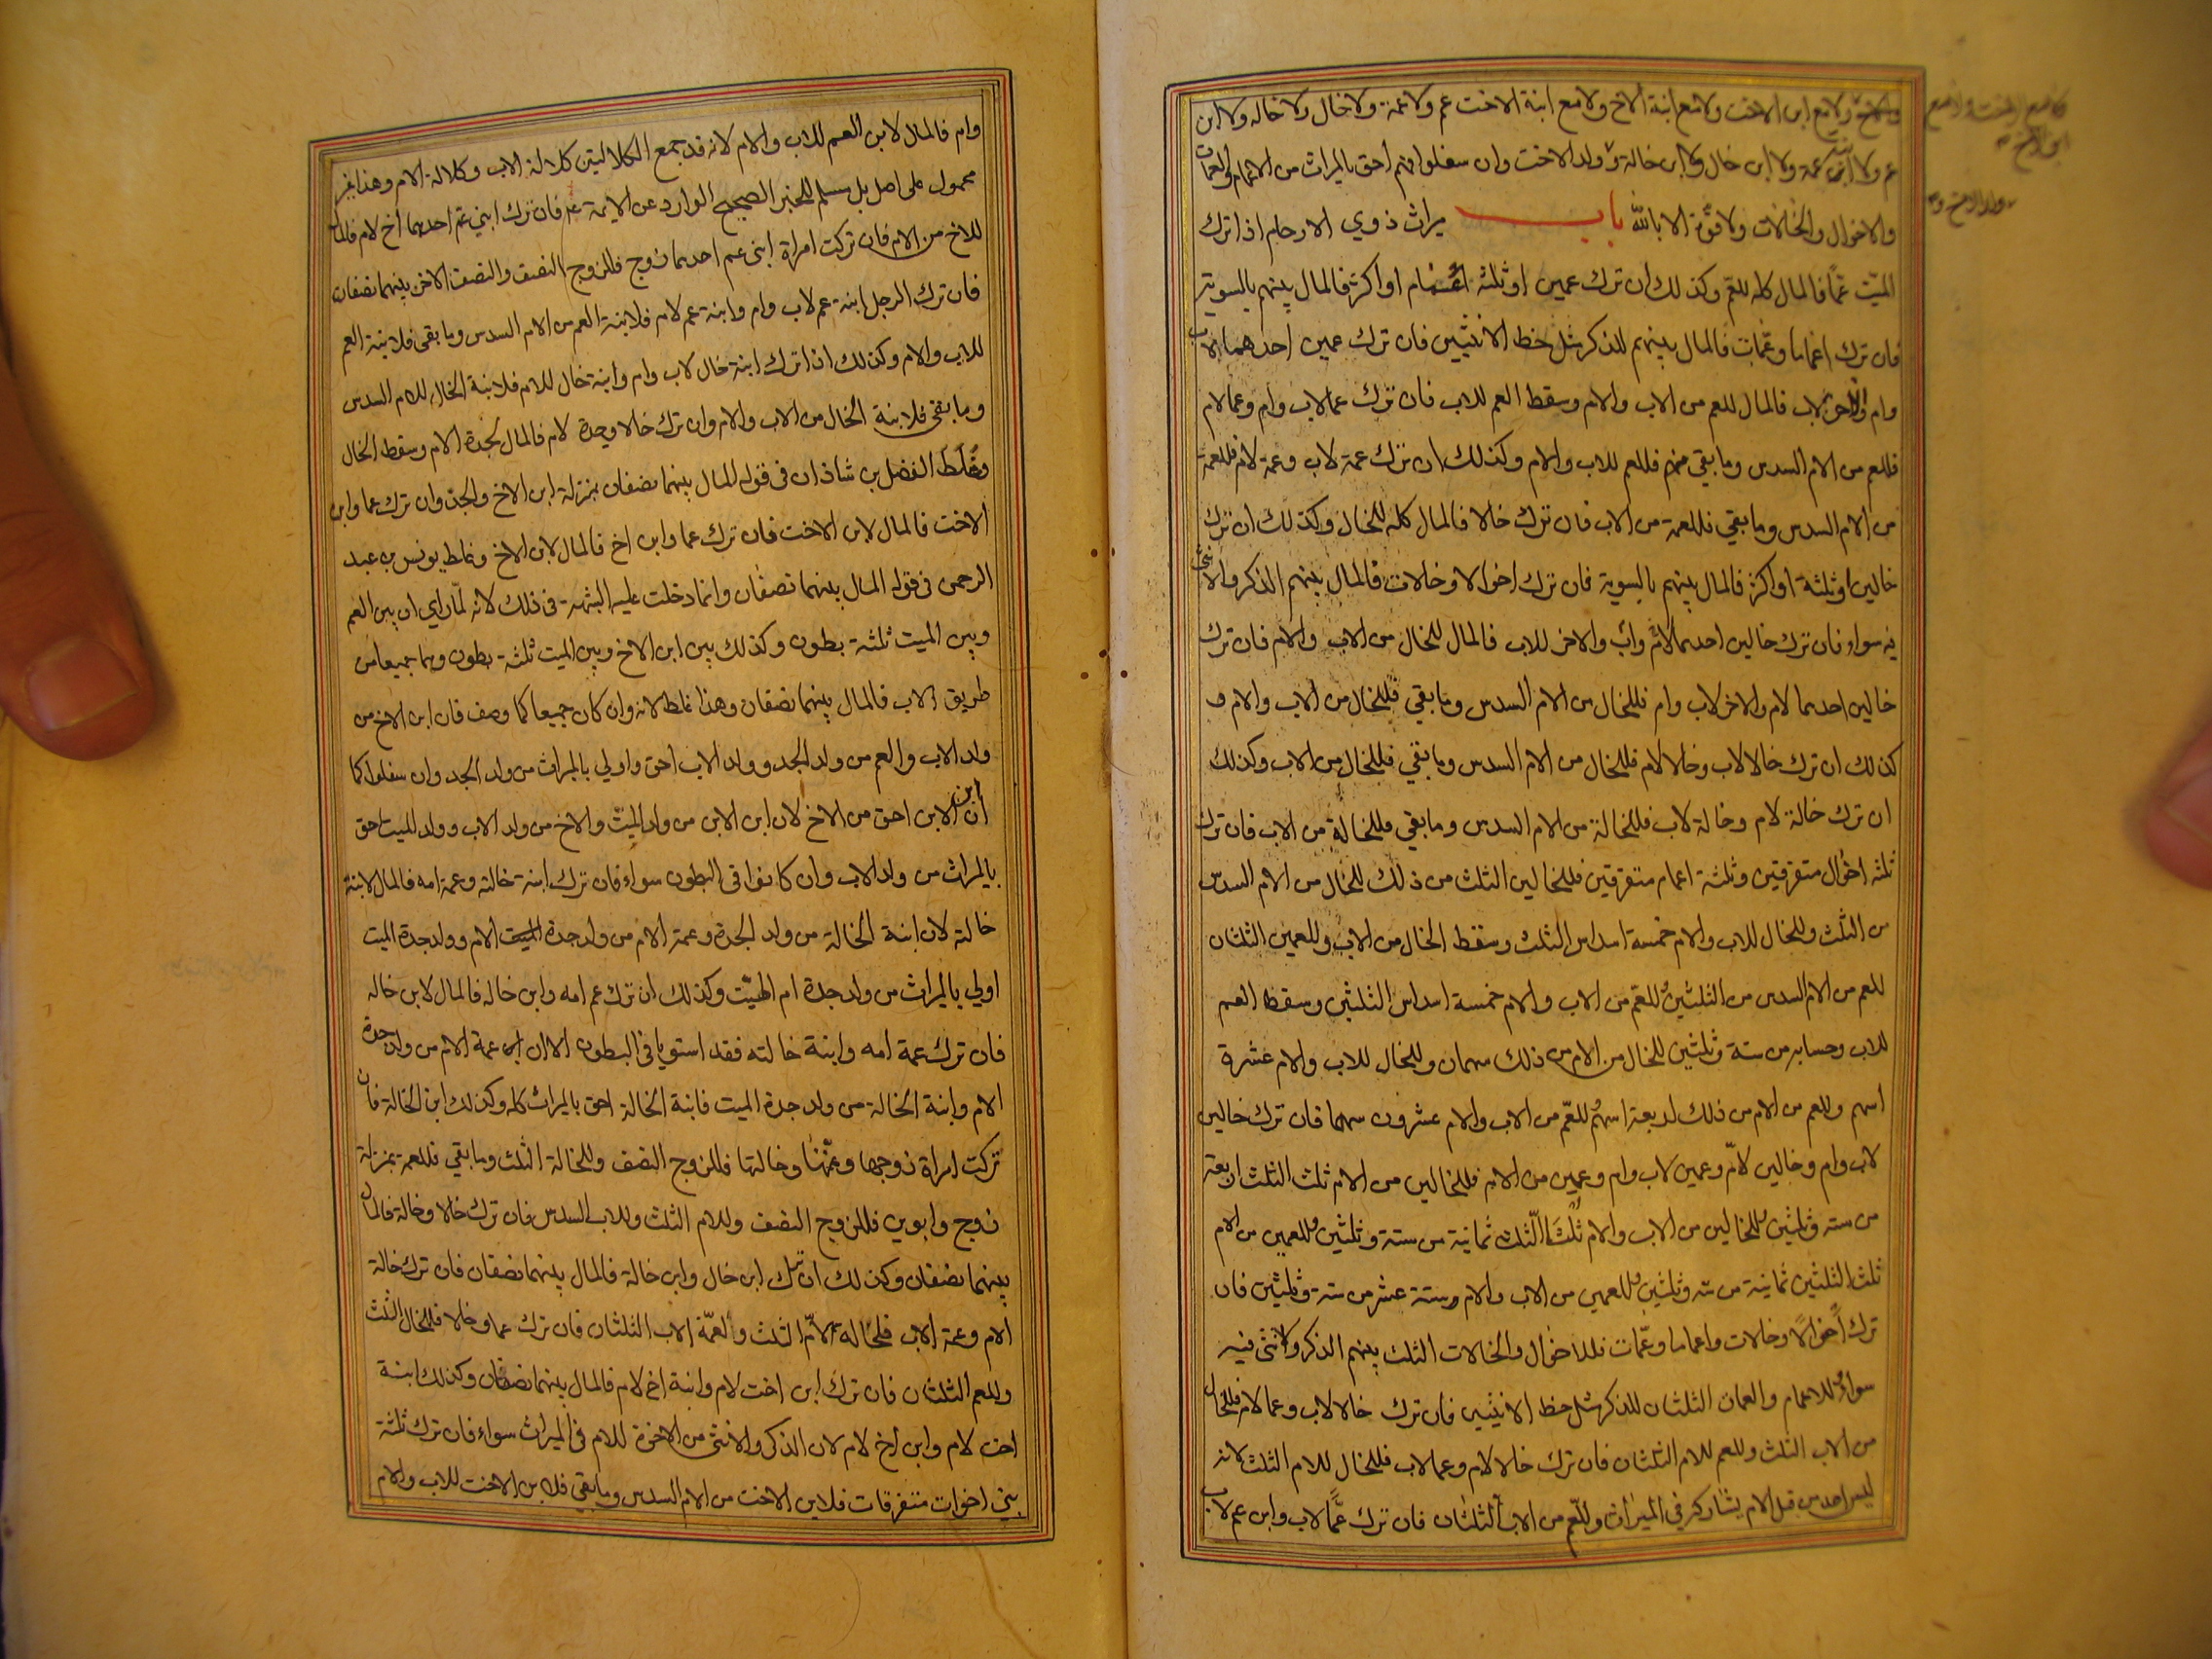 والاخ ولا مع ابن الاخت ولا مع ابنة الاخ ولا مع ابنة الاخت عم ولا عمة ولا خال ولا خالة ولا ابن
عم ولا ابن عمة ولا ابن خال ولا ابن خالة وولد الاخت وان سفلوا فهم احق بالميراث من الاعمام والعمات
والاخوال والخالات ولا قوة الا بالله باب ميراث ذوي الارحام اذا ترك
الميّت عمّا فالمال كله للعم وكذلك ان ترك عمين او ثلثة اعمام او اكثر فالمال بينهم بالسوية
فان ترك اعماما وعمّات فالمال بينهم للذكر مثل حظ الانثيين فان ترك عمين احدهما لاب
وام والاخر لاب فالمال للعم من الاب والام وسقط العم للاب فان ترك عما لاب وام وعما لام
فللعم من الام السدس وما بقي منهم فللعم للاب والام وكذلك ان ترك عمة لاب وعمة لام فللعمة
من الام السدس وما بقي فللعمة من الاب فان ترك خالا فالمال كله للخال وكذلك ان ترك
خالين او ثلثة او اكثر فالمال بينهم بالسوية فان ترك اخوالا وخالات فالمال بينهم الذكر والانثى
فيه سواء فان ترك خالين احدهما لام واب والاخر للاب فالمال للخال من الاب والام فان ترك
خالين احدهما لام والاخر لاب وام فللخال من الام السدس وما بقي فللخال من الاب والام و
كذلك ان ترك خالا لاب وخالا لام فللخال من الام السدس وما بقي فللخال من الاب وكذلك
ان ترك خالة لام وخالة لاب فللخالة من الام السدس وما بقي فللخالة من الاب فان ترك
ثلثة اخوال متفرقين وثلثة اعمام متفرقين فللخالين الثلث من ذلك للخال من الام السدس
من الثلث وللخال للاب والام خمسة اسداس الثلث وسقط الخال من الاب وللعمين الثلثان
للعم من الام السدس من الثلثين وللعم من الاب والام خمسة اسداس الثلثين وسقط العم
للاب وحسابه من ستة وثلثين للخال من الام من ذلك سهمان وللخال للاب والام عشرة
اسهم وللعم من الام من ذلك اربعة اسهم وللعّم من الاب والام عشرون سهما فان ترك خالين
لاب وام وخالين لامّ وعمين لاب وام وعمين من الام فللخالين من الام ثلث الثلث اربعة
من ستة وثلثين وللخالين من الاب والام ثلثا الثلث ثمانية من ستة وثلثين وللعمين من الام
ثلث الثلثين ثمانية من ستة وثلثين وللعمين من الاب والام ستة عشر من ستة وثلثين فان
ترك اخوالا وخالات واعماما وعمّات فللاخوال والخالات الثلث بينهم الذكر والانثى فيه
سواء وللاعمام والعمات الثلثان للذكر مثل حظ الانثيين فان ترك خالا لاب وعما لام فللخال
من الاب الثلث وللعم للام الثلثان فان ترك خالا لام وعما لاب فللخال للام الثلث لانه
ليس احد من قبل الام يشاركه في الميراث وللعّم من الاب الثلثان فان ترك عمّا لاب وابن عم لاب
وام فالمال لابن العم للاب والام لانه قد جمع الكلالتين كلالة الاب وكلالة الام وهذا غير
محمول على اصل بل مسلم للخبر الصحيح الوارد عن الايمة ع فان ترك ابني عم احدهما اخ لام فالمال
للاخ من الام فان تركت امراة ابنى عم احدهما زوج فللزوج النصف والنصف الاخر بينهما نصفان
فان ترك الرجل ابنة عم لاب وام وابنة عم لام فلابنة العم من الام السدس وما بقى فلابنة العم
للاب والام وكذلك اذا ترك ابنة خال لاب وام وابنة خال للام فلابنة الخال للام السدس
وما بقى فلابنة الخال من الاب والام وان ترك خالا وجدة لام فالمال لجدة الام وسقط الخال
وغلط الفضل بن شاذان فى قوله المال بينهما نصفان بمنزلة ابن الاخ والجد وان ترك عما وابن
الاخت فالمال لابن الاخت فان ترك عما وابن اخ فالمال لابن الاخ وغلط يونس بن عبد
الرحمن فى قوله المال بينهما نصفان وانما دخلت عليه الشبهة فى ذلك لانه لمّا راي ان بين العم
وبين الميت ثلثة بطون وكذلك بين ابن الاخ وبين الميت ثلثة بطون وهما جميعا من
طريق الاب فالمال بينهما نصفان وهذا غلط لانه وان كان جميعا كما وصف فان ابن الاخ من
ولد الاب والعم من ولد الجد وولد الاب احق واولي بالميراث من ولد الجد وان سفلوا كما
ان ابن الابن احق من الاخ لان ابن الابن من ولد الميّت والاخ من ولد الاب وولد الميت احق
بالميراث من ولد الاب وان كانوا فى البطون سواء فان ترك ابنة خالته وعمة امه فالمال لابنة
خالته لان ابنة الخالة من ولد الجدة وعمة الام من ولد جدة الام وولد جدة الميت
اولي بالميراث من ولد جدة ام الميّت وكذلك ان ترك عم امه وابن خاله فالمال لابن خاله
فان ترك عمة امه وابنة خالته فقد استويا فى البطون الا ان عمة الام من ولد جدة
الام وابنة الخالة من ولد جدة الميت فابنة الخالة احق بالميراث كله وكذلك ابن الخالة فان
تركت امراة زوجها وعمّتها وخالتها فللزوج النصف وللخالة الثلث وما بقي فللعمة بمنزلة
زوج وابوين فللزوج النصف وللام الثلث وللاب السدس فان ترك خالا وخالة فالمال
بينهما نصفان وكذلك ان ترك ابن خال وابن خالة فالمال بينهما نصفان فان ترك خالة
الام وعمة الاب فلخالة الامّ الثلث ولعمّة الاب الثلثان فان ترك عما وخالا فللخال الثلث
وللعم الثلثان فان ترك ابن اخت لام وابنة اخ لام فالمال بينهما نصفان وكذلك ابنة
اخت لام وابن اخ لام لان الذكر والانثى من الاخوة للام فى الميراث سواء فان ترك ثلثة
بني اخوات متفرقات فلابن الاخت من الام السدس وما بقي فلابن الاخت للاب والام